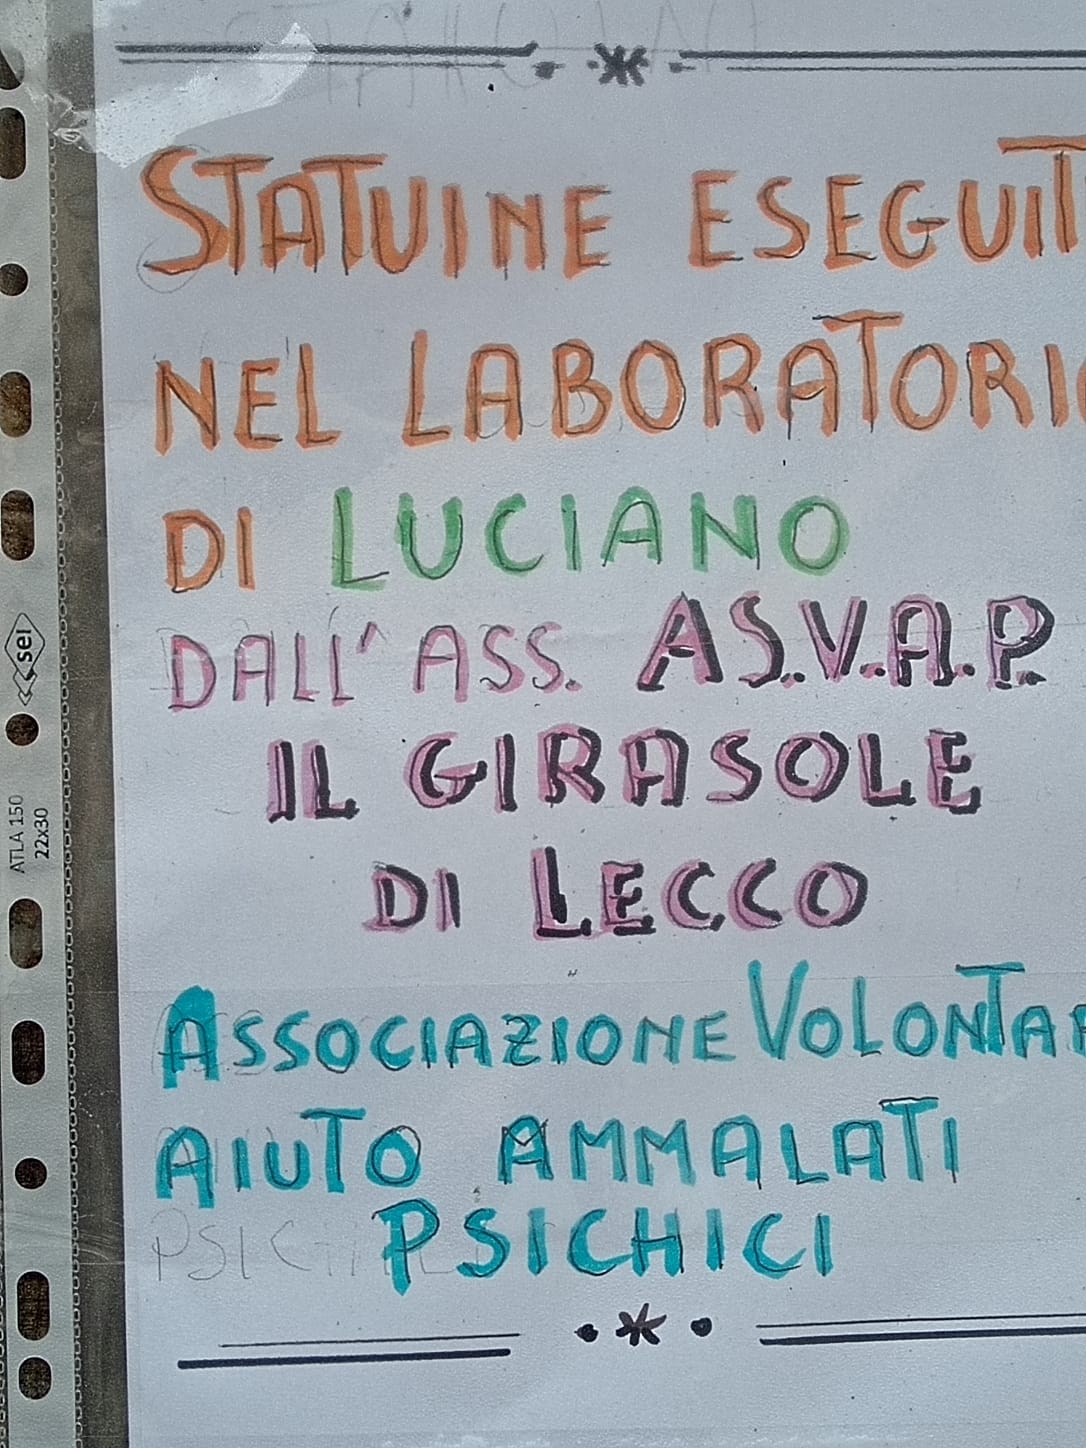 STATUINE ESEGUIT
NEL LABORATORI
DI LUCIANO
DALL'ASS. A.S.V.A.P.
IL GIRASOLE
DI LECCO
ASSOCIAZIONE VOLONTA
AIUTO AMMALATI
PSICHICI
sei
ATLA 150
22x30